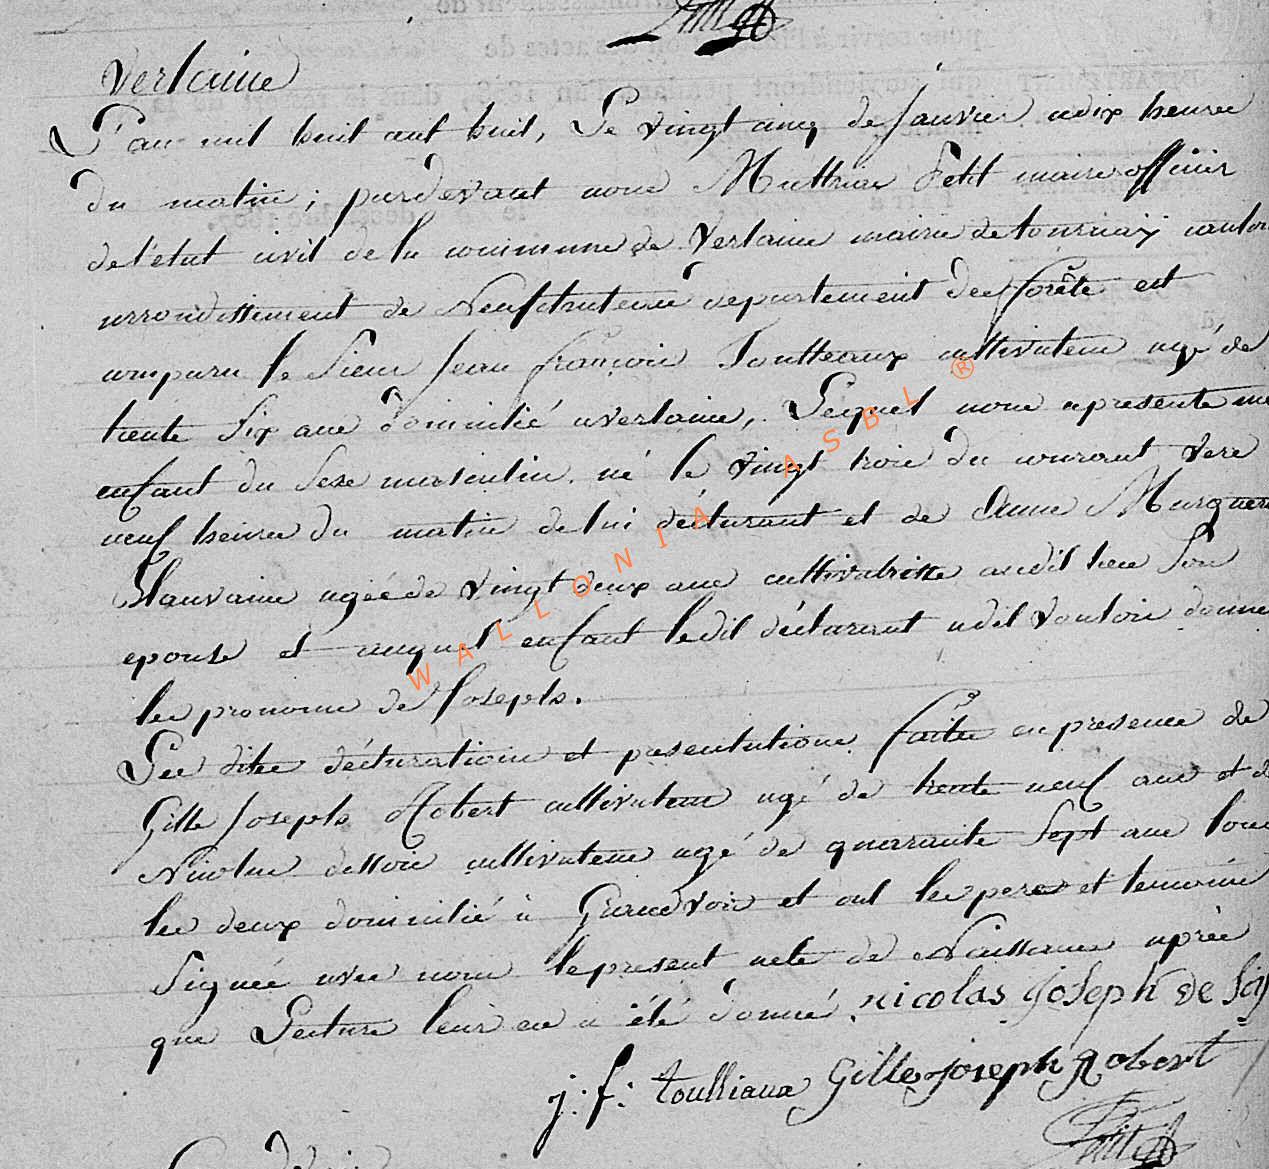 Verlaine
L'an mil huit cent huit, Le vingt cinq de Janvier a dix heures
du matin; pardevant nous Mathias Petit maire officier
de l'état civil de la commune de Verlaine mairie de tournaÿ canton
arrondissement de Neufchateau departement des forêts est
comparu le Sieur Jean françois Toulteaux cultivateur agé de
trente Six ans domicilié a verlaine, Lequel nous a presenté un
enfant du Sexe masculin né le vingt trois du courant vers
neuf heures du matin de lui déclarant et de Anne Marguerite
agée de vingt deux ans cultivatrice audit lieu Son
epouse et auquel enfant ledit déclarant a dit vouloir donner
les pronoms de Joseph.
Les dites déclarations et presentations faites en presence de
Gille Joseph Robert cultivateur agé de trente neuf ans et de
Nicolas dessoie cultivateur agé de quarante Sept ans tous
les deux domicilié à Grandvoir et ont les pere et temoins
Signés avec nous le present acte de Naissance après
que Lecture leur en a été donné. nicolas Joseph de Soy
j: f: toulliaux Gille joseph Robert
Petit
WALLONIA ASBL ®